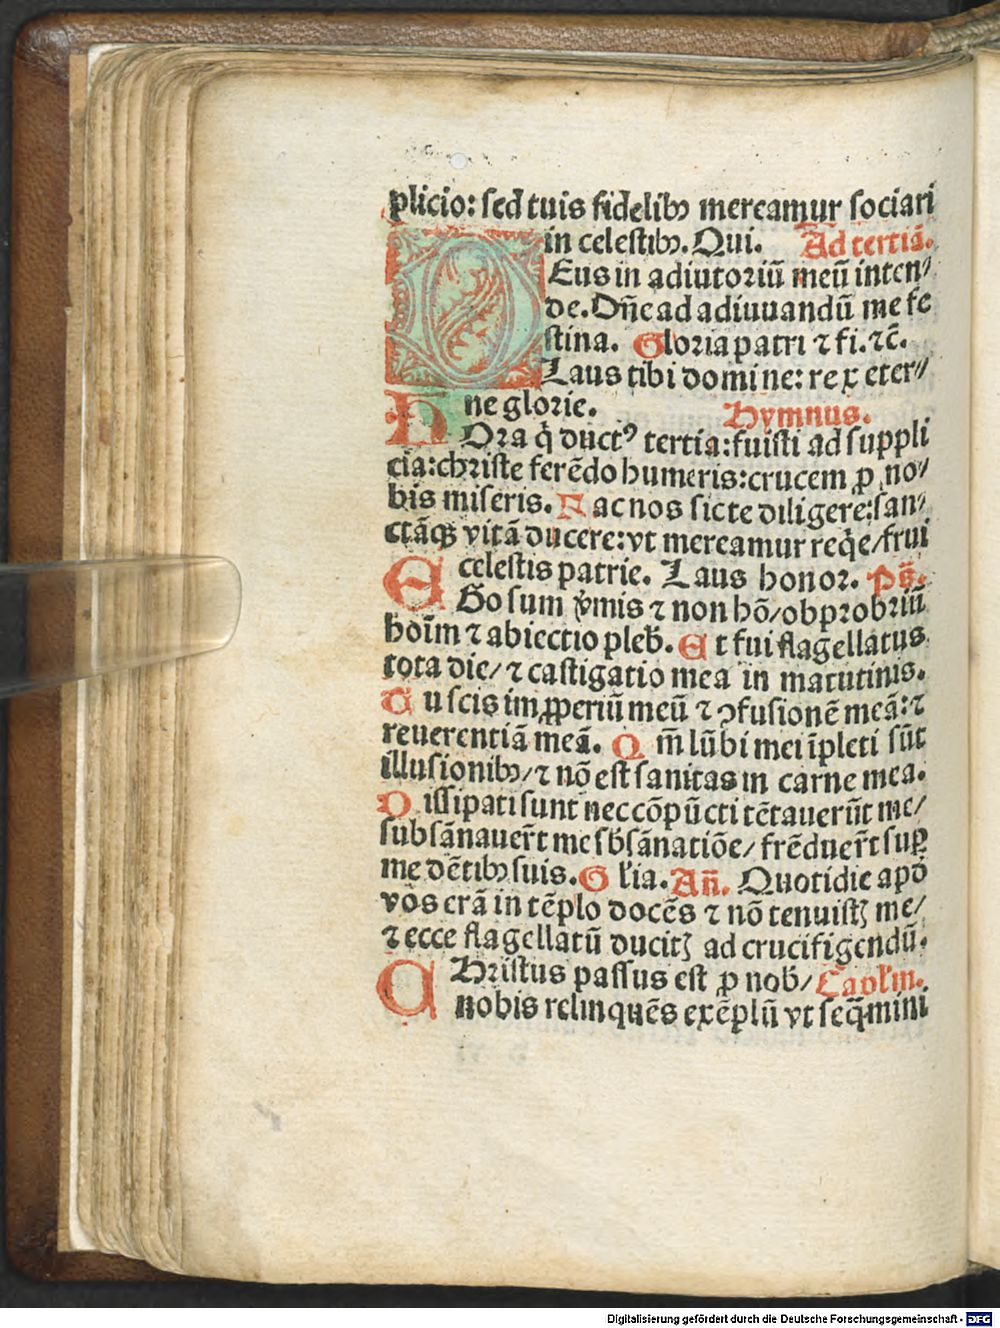 plicio: sed tuis fidelibꝰ mereamur sociari
in celestibꝰ. Qui. Ad tertiā.
DEus in adiutoriū meū inten⸗
de. Dñe ad adiuuandū me fe
stina. Gloria patri ⁊ fi. ⁊c̄.
Laus tibi domine: rex eter⸗
ne glorie. Hymnus.
HOra q̄ duct⁹ tertia: fuisti ad suppli
cia: christe ferēdo humeris: crucem ꝓ no⸗
bis miseris. Fac nos sic te diligere: san⸗
ctāqꝫ vitā ducere: vt mereamur reqͥe/ frui
celestis patrie. Laus honor. Ps̄.
EGo sum v̓mis ⁊ non hō/ obprobriū
hoīm ⁊ abiectio pleb̓. Et fui flagellatus
tota die/ ⁊ castigatio mea in matutinis.
Tu scis imꝓperiū meū ⁊ ꝯfusionē meā: ⁊
reuerentiā meā. Qm̄ lūbi mei īpleti sūt
illusionibꝰ/ ⁊ nō est sanitas in carne mea.
Dissipati sunt nec cōpūcti tētauerūt me/
subsānauer̄t me sb̓sānatiōe/ frēduer̄t suꝑ
me dētibꝰ suis. Gl̓ia. Añ. Quotidie apd̓
vos erā in tēplo docēs ⁊ nō tenuistꝫ me/
⁊ ecce flagellatū ducitꝫ ad crucifigendū.
CHristus passus est ꝓ nob̓/ Capl̓m.
nobis relinquēs exēplū vt seq̄mini
Digitalisierung gefördert durch die Deutsche Forschungsgemeinschaft - DFG